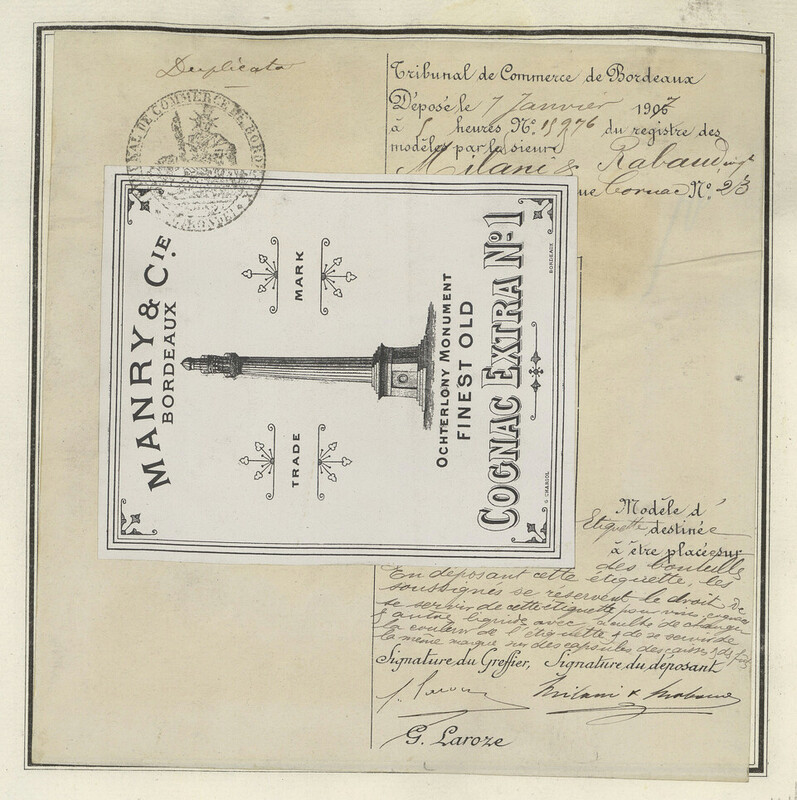 Duplicata
TRIBUNAL DE COMMERCE DE BORDEAUX
(GIRONDE)
Tribunal de Commerce de Bordeaux
Déposé le 7 Janvier 1907
à heures No. 15276 du registre des
modèles par le sieurs
Milani & Rabaud,
rue Cornac No. 23
MANRY & CIE.
BORDEAUX
TRADE MARK
OCHTERLONY MONUMENT
FINEST OLD
COGNAC EXTRA No. 1
G. CHARIOL BORDEAUX
Modèle d'
Etiquette destinée
à être placée sur
des bouteilles
En déposant cette étiquette, les
soussignés se réservent le droit de
se servir de cette étiquette pour vin, cognac
& autre liquide avec faculté de changer
la couleur de l'étiquette & de se servir de
la même marque sur des capsules des caisses & des fûts
Signature du Greffier, Signature du déposant
Milani & Rabaud
G. Laroze